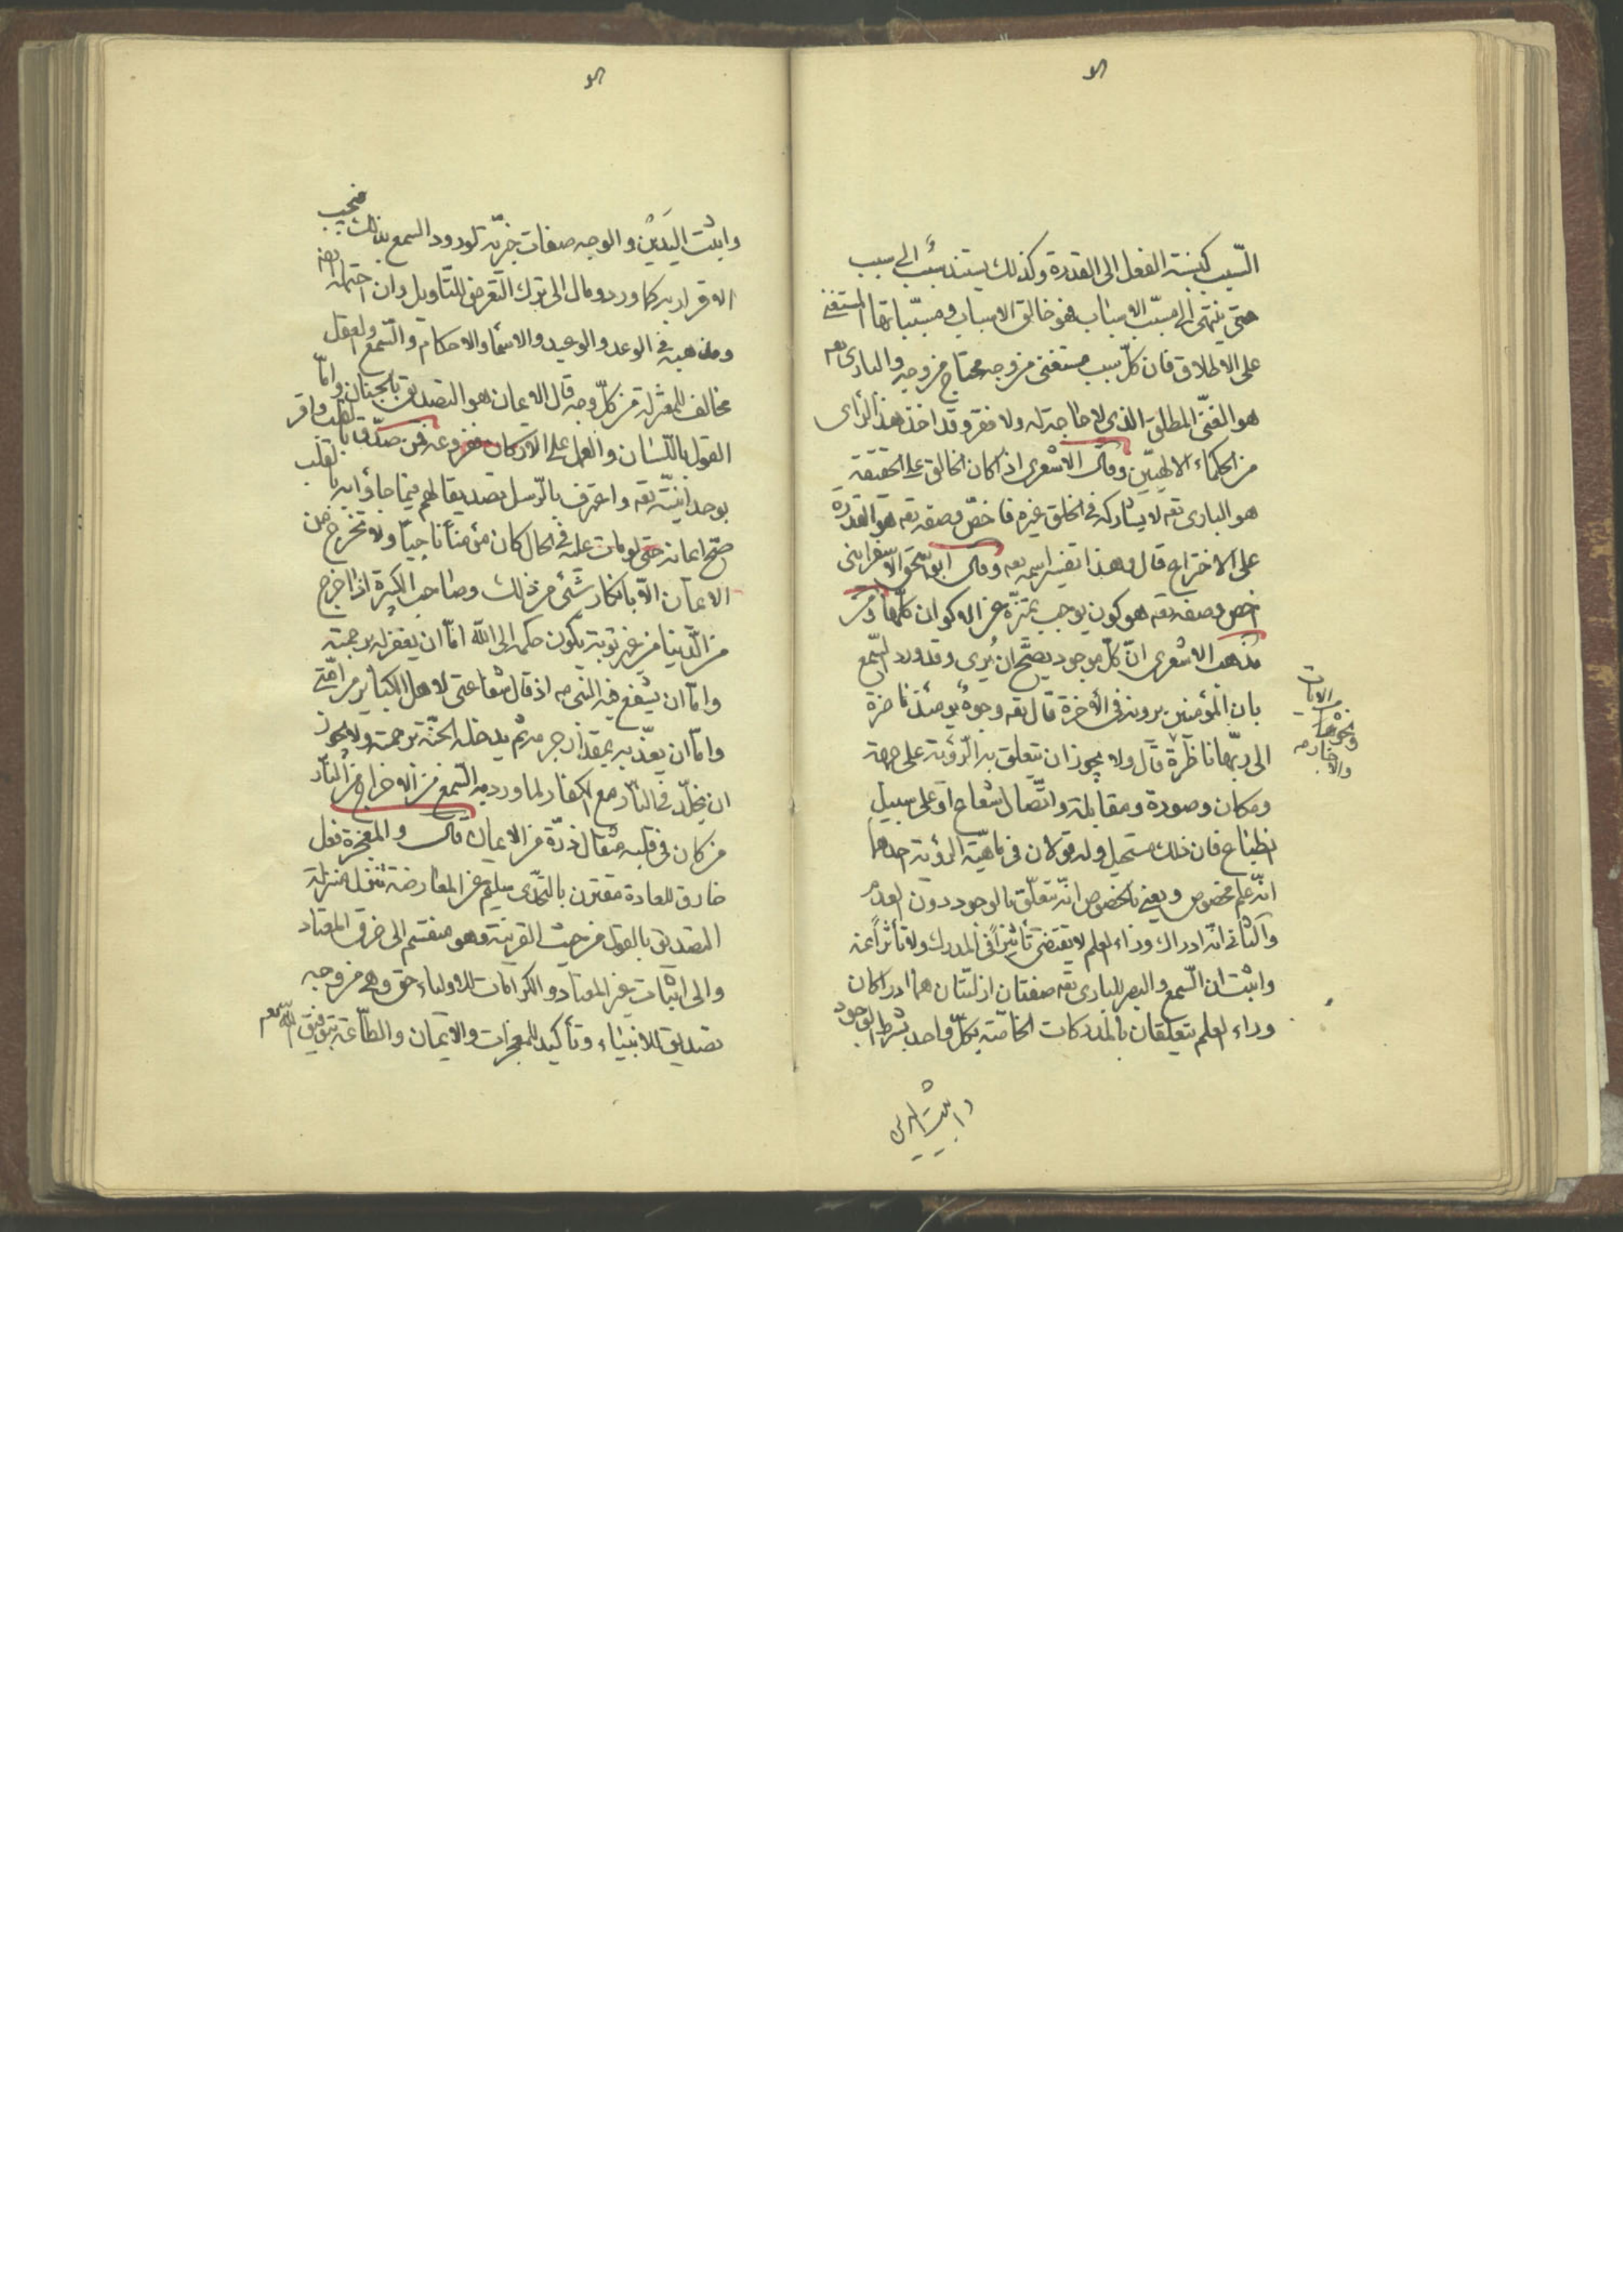 السبب كنسبة الفعل الى القدرة وكذلك يستند سبب الى سبب
حتى ينتهى الى مسبب الاسباب فهو خالق الاسباب ومسبباتها المستغنى
على الاطلاق فان كل سبب مستغنى من وجه محتاج من وجه والبارى تعم
هو الغنى المطلق الذى لا حاجة له ولا فقر وقد اخذ هذا الراى
من الحكماء الالهيين وقال الاشعرى اذا كان الخالق على الحقيقة
هو البارى تعه لا يشاركه فى الخلق غيره فاخص وصفه تعه هو القدرة
على الاختراع قال وهذا تفسير اسمه تعه وقال ابو اسحق الاسفراينى
اخص وصفه تعه هو كون يوجب تميزه عن الاكوان كلها ومن
مذهب الاشعرى ان كل موجود يصح ان يُرى وقد ورد السمع
بان المؤمنين يرونه فى الآخرة قال تعه وجوه يومئذ ناضرة
الى ربها ناظرة قال ولا يجوز ان يتعلق به الرؤية على جهة
الايات
ونحوها
والاخبار
ومكان وصورة ومقابلة واتصال شعاع او على سبيل
انطباع فان ذلك مستحيل وله قولان فى ماهية الرؤية احدهما
انه علم مخصوص ويعنى بالخصوص انه يتعلق بالوجود دون العدم
والثانى انه ادراك وراء العلم لا يقتضى تأثيراً فى المدرك ولا تأثراً عنه
واثبت ان السمع والبصر للبارى تعه صفتان ازليتان هما ادراكان
وراء العلم يتعلقان بالمدركات الخاصة بكل واحد بشرط الوجود
واثبت اليدين
واثبت اليدين والوجه صفات خبرية لورود السمع بذلك فيجب
الاقرار به كما ورد ومال الى ترك التعرض للتأويل وان احتمله
ومذهبه فى الوعد والوعيد والاسماء والاحكام والسمع والعقل
مخالف للمعتزلة من كل وجه قال الايمان هو التصديق بالجنان واما
القول باللسان والعمل على الاركان ففروعه فمن صدق بالقلب واقر
بوحدانيته تعه واعترف بالرسل تصديقا لهم فيما جاؤا به بالقلب
صح ايمانه حتى لو مات عليه فى الحال كان مؤمنا ناجيا ولا تخرج من
الايمان الا بانكار شئى من ذلك وصاحب الكبيرة اذا خرج
من الدنيا من غير توبة يكون حكمه الى الله اما ان يغفر له برحمته
واما ان يشفع فيه النبى صه اذ قال شفاعتى لاهل الكبائر من امتى
واما ان يعذبه بمقدار جرمه ثم يدخله الجنة برحمته ولا يجوز
ان يخلد فى النار مع الكفار لما ورد به السمع من الاخراج من النار
من كان فى قلبه مثقال ذرة من الايمان قال والمعجزة فعل
خارق للعادة مقترن بالتحدى سليم عن المعارضة تنزل منزلة
التصديق بالقول من حيث القرينة وهو منقسم الى خرق المعتاد
والى اثبات غير المعتاد والكرامات للاولياء حق وهى من وجه
تصديق للانبياء وتأكيد للمعجزات والايمان والطاعة بتوفيق الله تعم